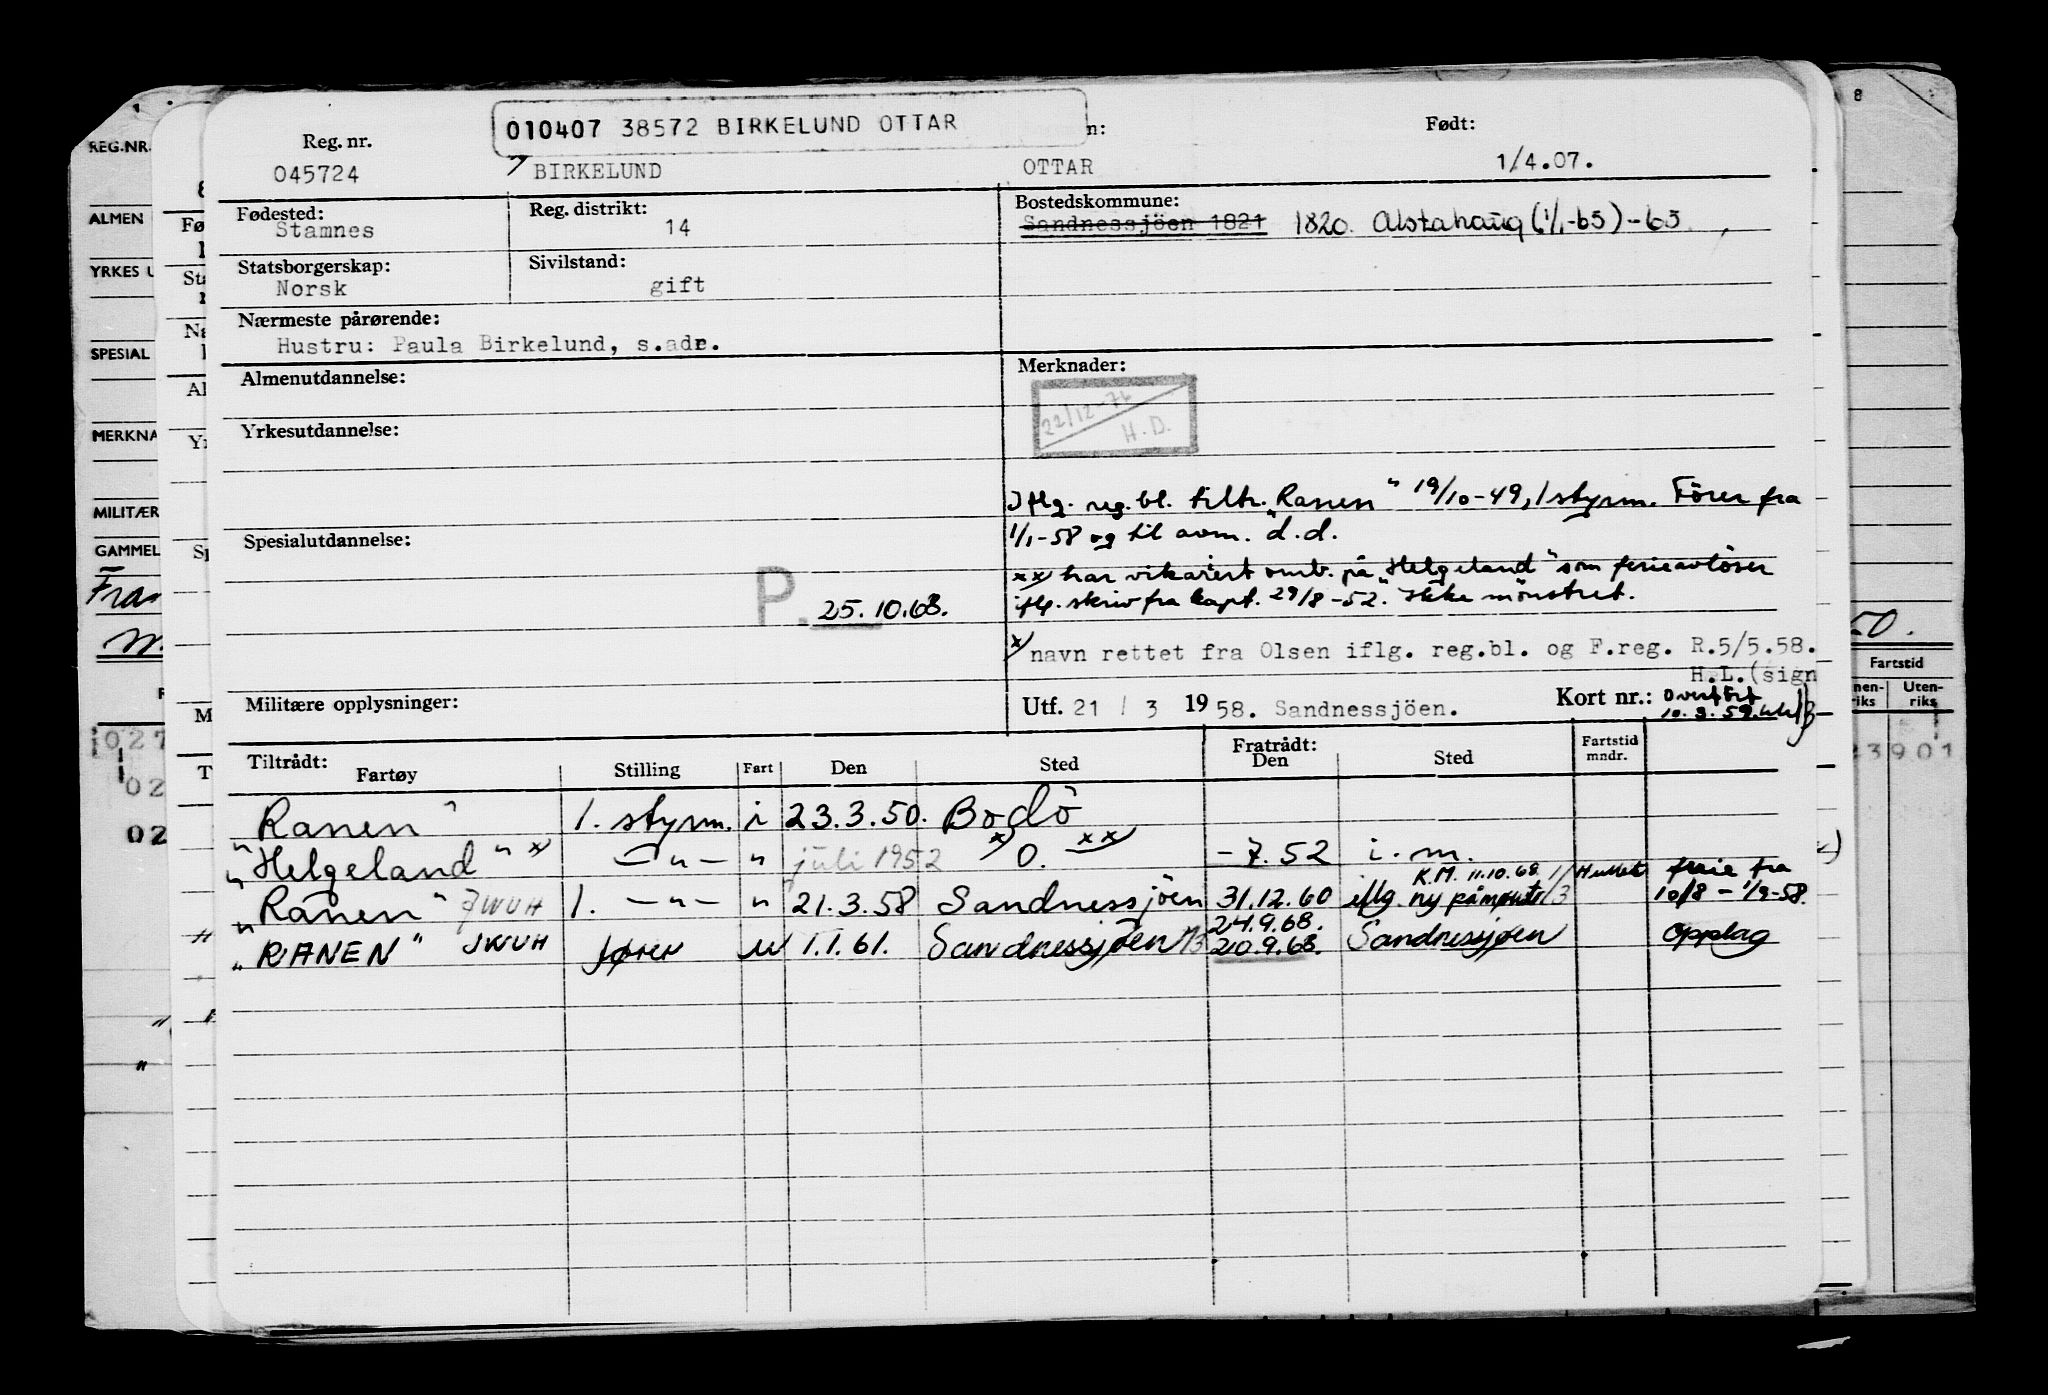 010407 38572 BIRKELUND OTTAR
Reg. nr.
n:
Født:
045724
BIRKELUND
OTTAR
1/4.07.
Fødested:
Stamnes
Reg. distrikt:
14
Bostedskommune:
Sandnessjöen 1821 1820. Alstahaug (1/1-65) -65
Statsborgerskap:
Norsk
Sivilstand:
gift
Nærmeste pårørende:
Hustru: Paula Birkelund, s.adr.
Almenutdannelse:
Merknader:
22/12-76
H.D.
Yrkesutdannelse:
Iflg. reg.bl. tiltr. "Ranen" 19/10-49, 1 styrm. Förer fra
1/1-58 og til avm. d.d.
Spesialutdannelse:
xx) har vikariert omb. på "Helgeland" som ferieavlöser
iflg. skriv fra kapt. 29/8-52. Ikke mönstret.
P. 25.10.68.
x) navn rettet fra Olsen iflg. reg.bl. og F.reg. R.5/5.58.
H.L.(sign
Militære opplysninger:
Utf. 21 / 3 1958. Sandnessjöen.
Kort nr.: Overfört
10.3.59.
Tiltrådt:
Fartøy
Stilling
Fart
Den
Sted
Fratrådt:
Den
Sted
Fartstid
mndr.
"Ranen" 1. styrm. i 23.3.50. Bodö
"Helgeland" x) —"— " juli 1952 O. xx) -7.52 i.m.
K.M. 11.10.68
"Ranen" JWUH 1. —"— " 21.3.58 Sandnessjöen 31.12.60 iflg. ny påmønstr. ferie fra
10/8 - 1/9-58.
24.9.68.
"RANEN" JWUH fører 1.1.61. Sandnessjøen 20.9.68. Sandnessjøen Opplag
REG.NR.
ALMEN
YRKES U
SPESIAL
MERKNA
MILITÆR
GAMMEL
Fra
8
50.
Fartstid
nen-
riks
Uten-
riks
027
02
02
23901